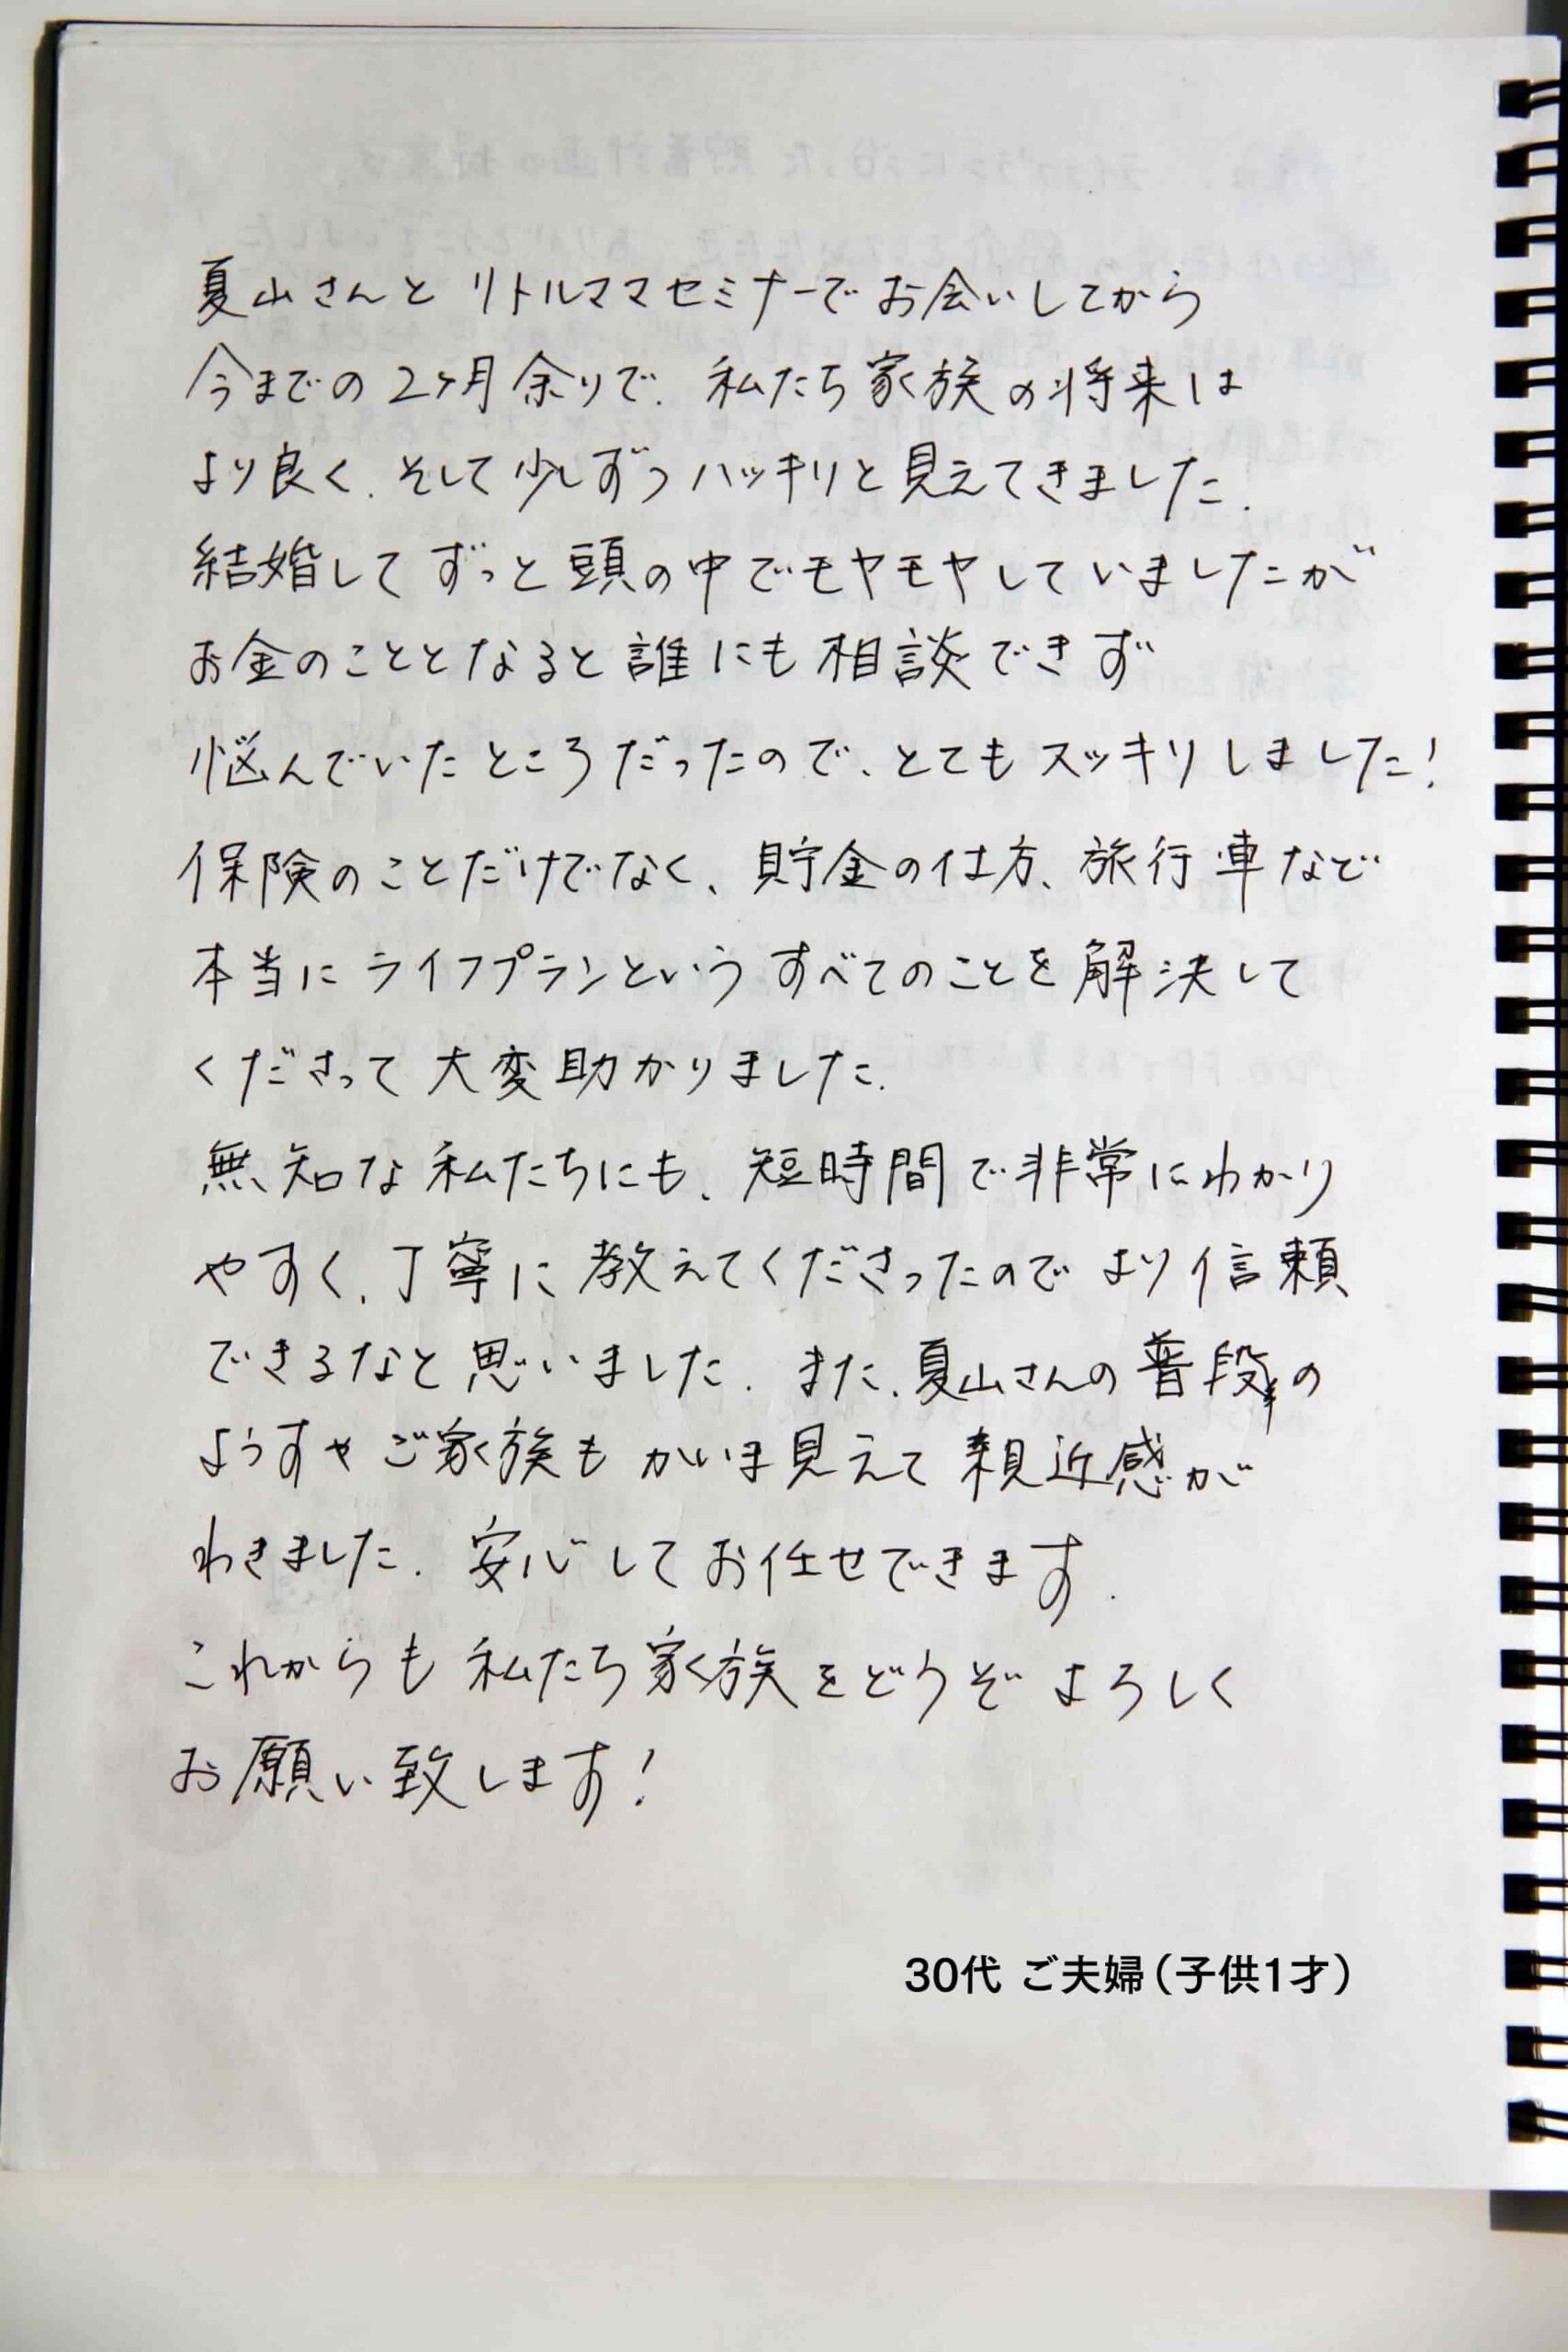 夏山さんと リトルママセミナーで お会いしてから
今までの 2ヶ月余りで、私たち家族の将来は
より良く、そして少しずつ ハッキリと見えてきました。
結婚して ずっと頭の中でモヤモヤしていましたが
お金のこととなると誰にも相談できず
悩んでいたところだったので、とてもスッキリしました!
保険のことだけでなく、貯金の仕方、旅行、車など
本当に ライフプランという すべてのことを解決して
くださって 大変助かりました。
無知な私たちにも、短時間で非常にわかり
やすく、丁寧に教えてくださったので より信頼
できるなと思いました。また、夏山さんの普段の
ようすや ご家族も かいま見えて 親近感が
わきました。安心してお任せできます。
これからも 私たち家族をどうぞ よろしく
お願い致します!
30代 ご夫婦(子供1才)